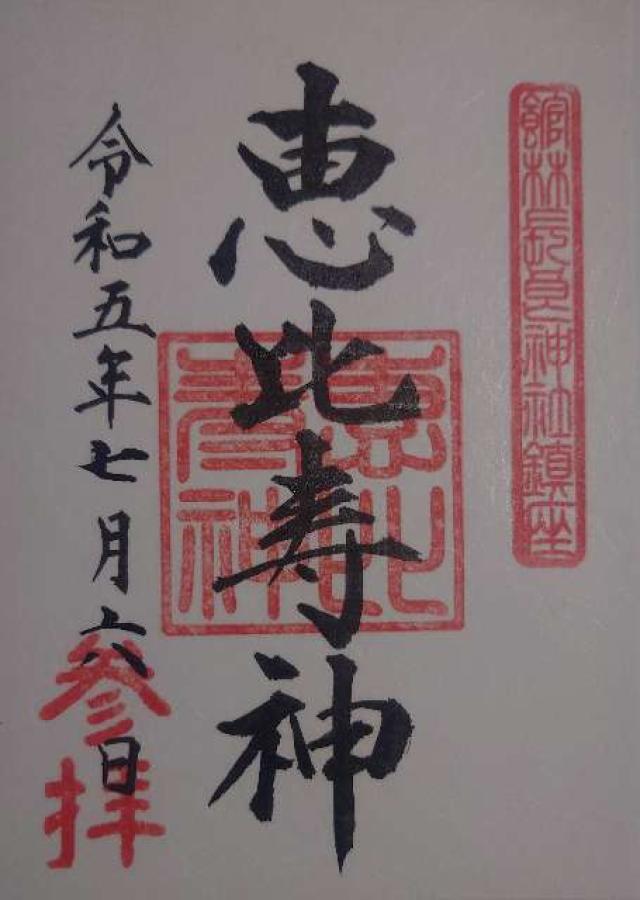 館林長良神社鎮座
恵比寿神
恵比寿神
令和五年七月六日
参拝